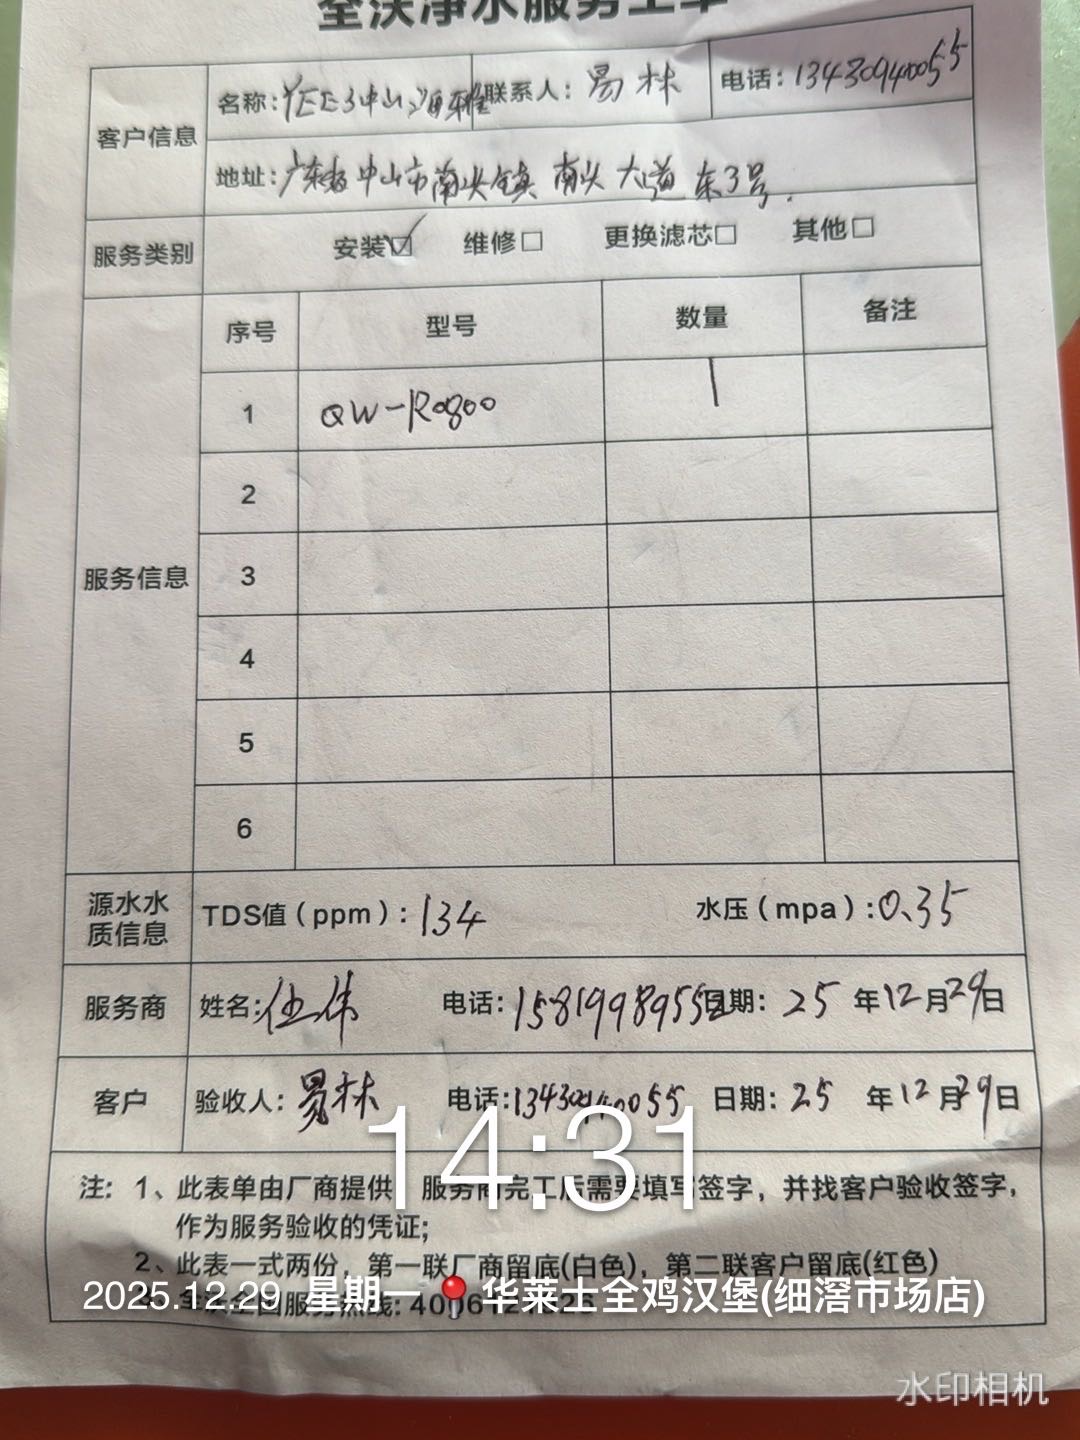 净水服务工单
客户信息
名称: YEE3中山 联系人: 易林 电话: 13430940055
地址: 广东省中山市南头镇 南头大道东3号.
服务类别 安装☑ 维修□ 更换滤芯□ 其他□
服务信息
序号 型号 数量 备注
1 QW-R0800 1
2
3
4
5
6
源水水质信息 TDS值(ppm): 134 水压(mpa): 0.35
服务商 姓名: 伍伟 电话: 1581998955 日期: 25 年 12 月 29 日
客户 验收人: 易林 电话: 13430940055 日期: 25 年 12 月 29 日
14:31
注: 1、此表单由厂商提供 服务商完工后需要填写签字，并找客户验收签字，
作为服务验收的凭证;
2、此表一式两份，第一联厂商留底(白色)，第二联客户留底(红色)
全国服务热线:
2025.12.29 星期一 华莱士全鸡汉堡(细滘市场店)
水印相机